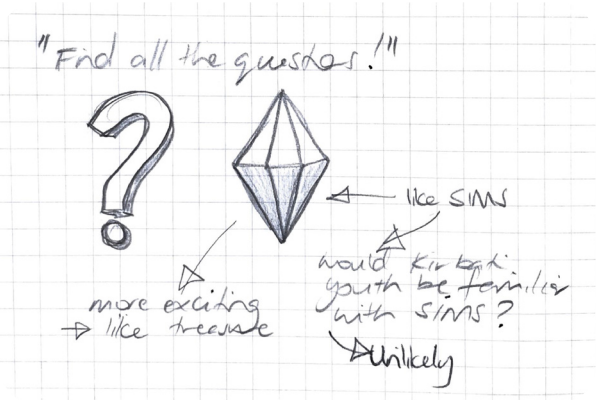 "Find all the questos!"
like SIMS
would Kiribati
youth be familiar
with SIMS?
Unlikely
more exciting
→ like treasure